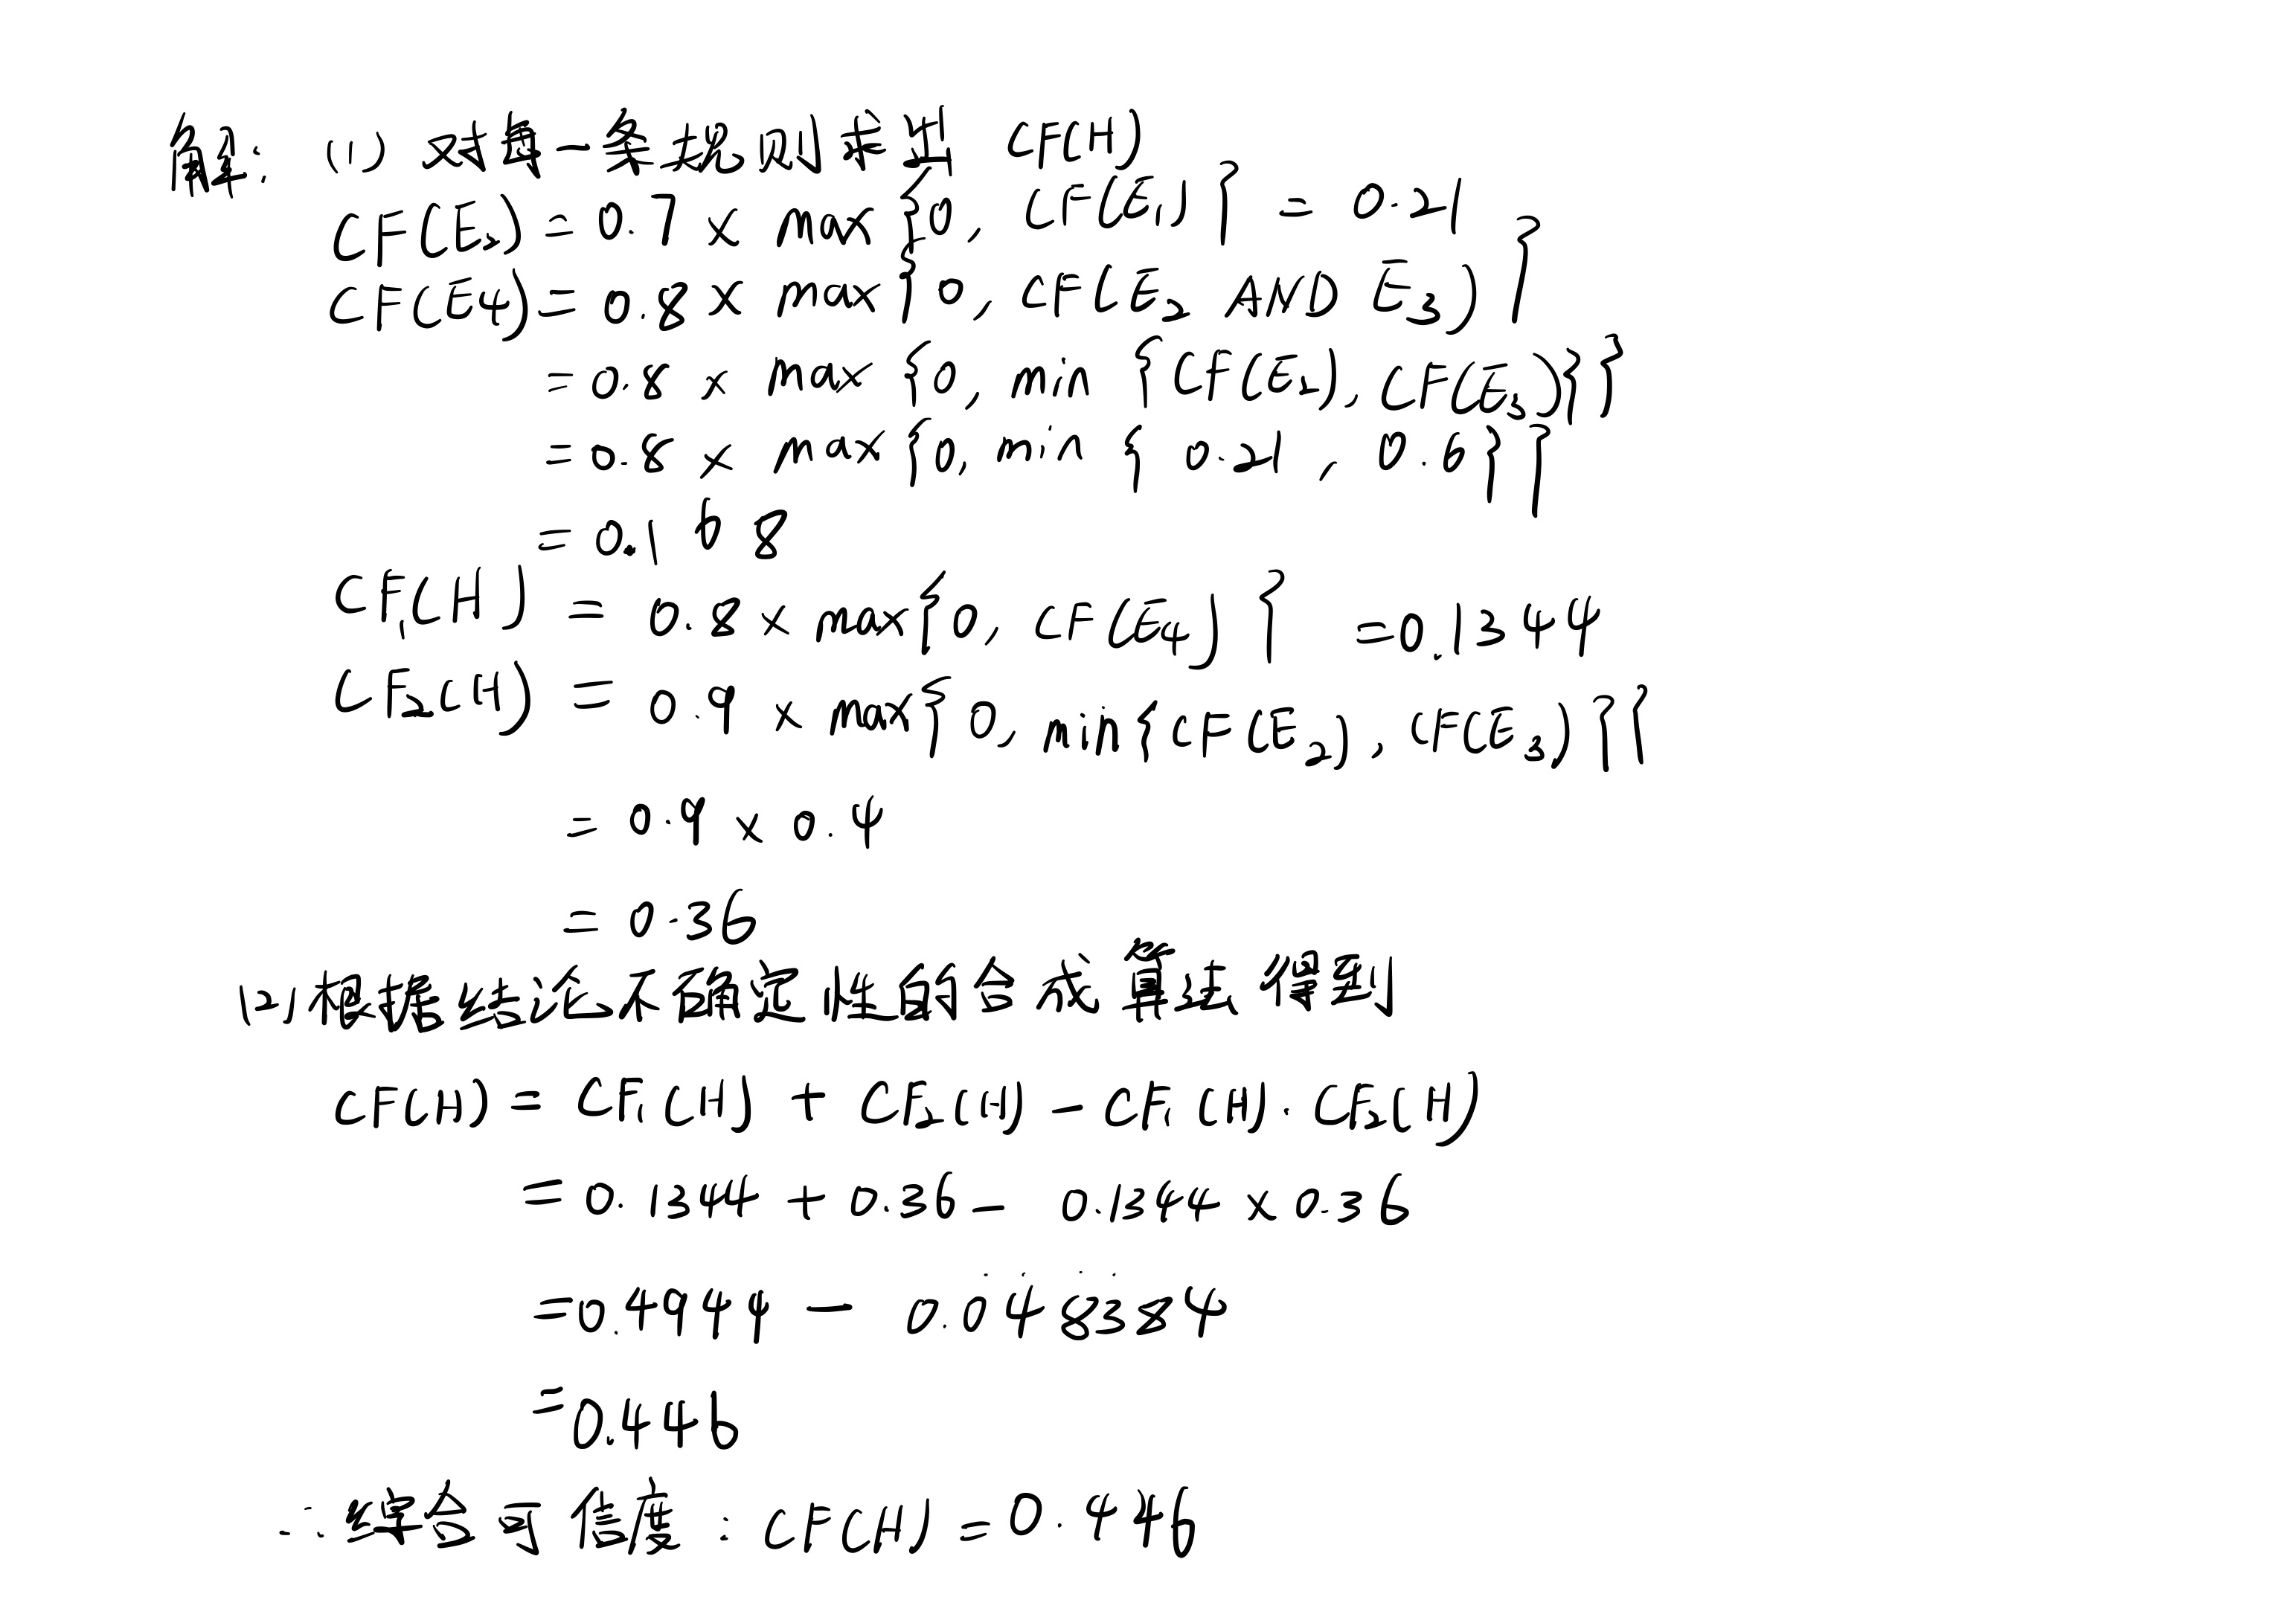 解: (1) 对每一条规则求出 CF(H)
CF(E₂) = 0.7 × max {0, CF(E₁)} = 0.21
CF(E4) = 0.8 × max {0, CF(E₂ AND E₃)}
= 0.8 × max {0, min {CF(E₂), CF(E₃)}}
= 0.8 × max {0, min {0.21, 0.6}}
= 0.168
CF₁(H) = 0.8 × max{0, CF(E₄)} = 0.1344
CF₂(H) = 0.9 × max{0, min{CF(E₂), CF(E₃)}}
= 0.9 × 0.4
= 0.36
(2) 根据结论不确定性的合成算法得到
CF(H) = CF₁(H) + CF₂(H) - CF₁(H) · CF₂(H)
= 0.1344 + 0.36 - 0.1344 × 0.36
= 0.4944 - 0.048384
= 0.446
∴ 综合可信度: CF(H) = 0.446